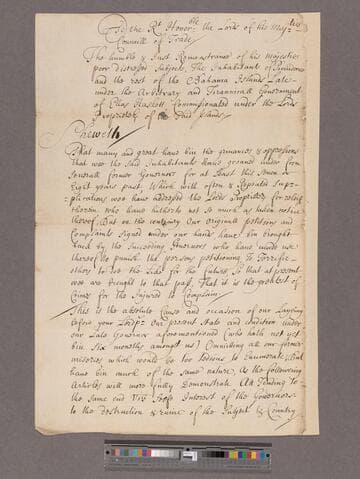 To the Rt Honorble the Lords of his Majties
Councill of Trade
The humble & Just Remonstrance of his Majesties
poor Distressed Subjects The Inhabitants of
and the rest of the Bahama Islands Late
under the Arbitrary and Tirannicall Government
of Elias Haskett Commissionated under the Lords
Proprietors of the said Islands
Sheweth
That many and great have bin the grievances & oppressions
that wee the said Inhabitants have groaned under from
Severall former Governors for at Least this Seven or
Eight years past, Which with often & Repeated Supp-
plications wee have addressed the Lords Proprietors for relief
therein who have hitherto not so much as taken notice
thereof But on the contrary Our Originall petitions and
Complaints Signed under our hands have bin brought
back by the Succeeding Governors who have made use
thereof to punish the persons petitioning To Terrifie
others to the Like for the future, So that at present
wee are brought to that pass, That it is the greatest of
Crimes for the Injured to Complain
This is the absolute Cause and occasion of our Laying
before your Lordps Our present State and condition under
our Late Governor aforementioned (who hath not yet
bin Six months amongst us) Ommitting all our former
miseries which would be too tedious to Enumerate, But
have bin much of the same nature, As the following
Articles will more fully Demonstrate, All Tending to
the same end Viz Selfe Interest of the Governors
to the Destruction & ruine of the Subject & Country